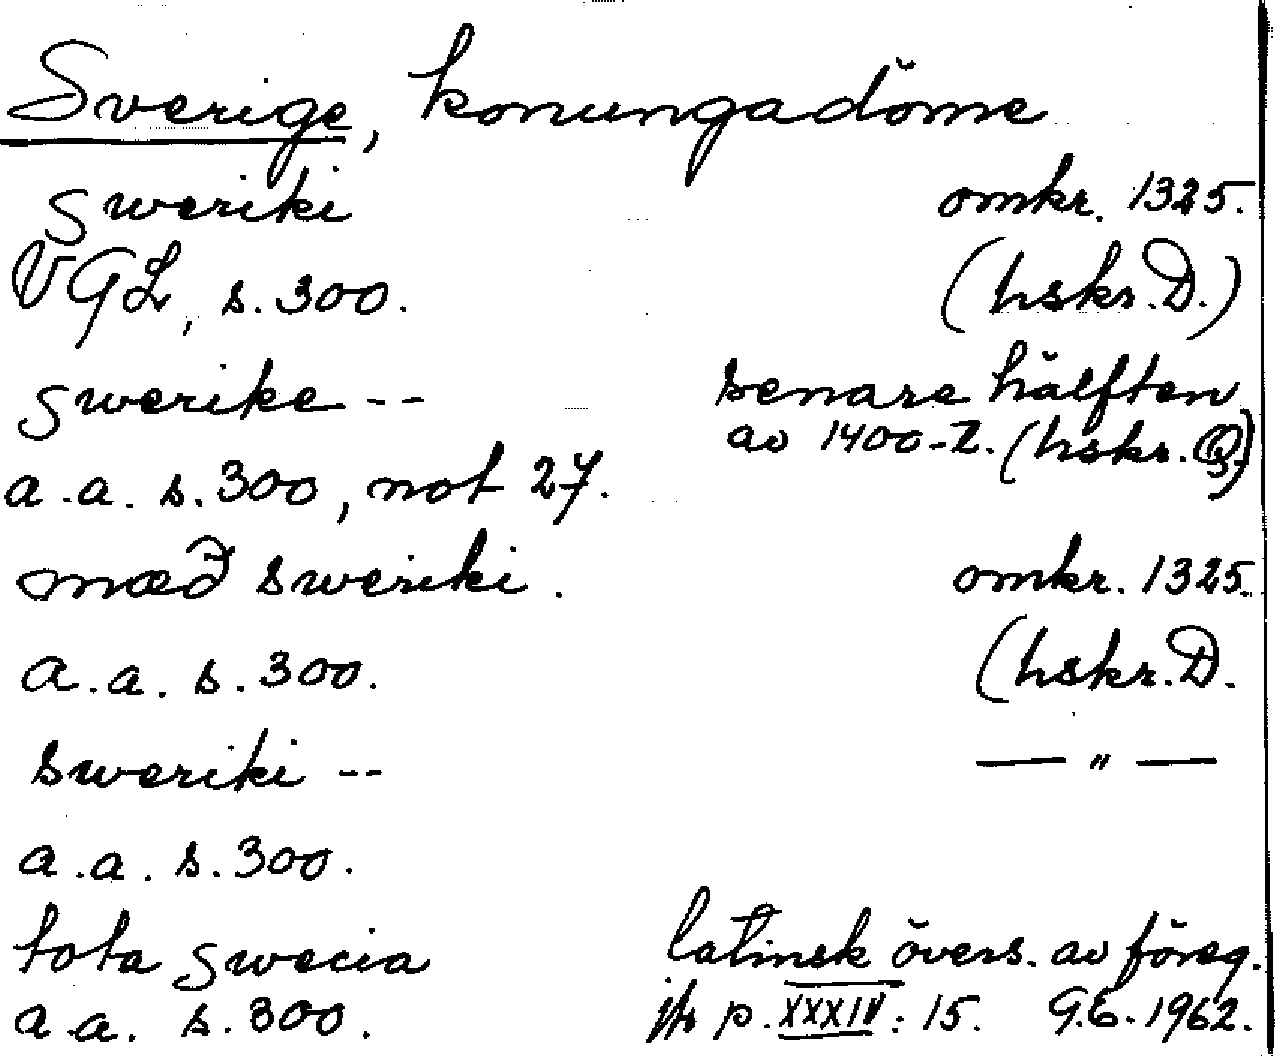 Sverige, konungadöme
sweriki omkr. 1325.
VGL, s. 300. (hskr. D.)
swerike -- senare hälften
av 1400-t. (hskr. Q.)
a.a. s. 300, not 27.
mæð sweriki. omkr. 1325.
a.a. s. 300. (hskr. D.
sweriki -- — " —
a.a. s. 300.
tota swecia latinsk övers. av föreg.
a a. s. 300. jfr p. XXXIV: 15. G.E. 1962.